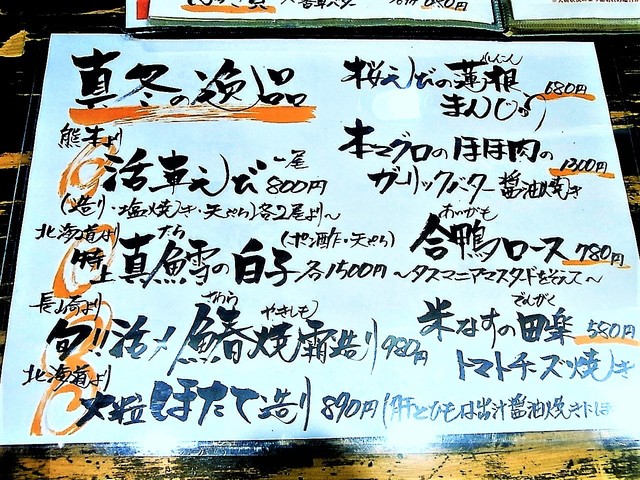 真冬の逸品
熊本より
活車えび 一尾 800円
(造り・塩焼き・天ぷら)各2尾より〜
北海道より
特上 真鱈の白子 (ポン酢・天ぷら) 各1500円
たら
長崎より
旬!!活〆鰆焼霜造り 980円
さわら やきしも
北海道より
大粒ほたて造り 890円 (肝とひもは出汁醤油焼きに
桜えびの蓮根
れんこん
まんじゅう 680円
本マグロのほほ肉の
ガーリックバター醤油焼き 1300円
あいがも
合鴨ロース 780円
〜タスマニアマスタードをそえて〜
でんがく
米なすの田楽 580円
トマトチーズ焼き